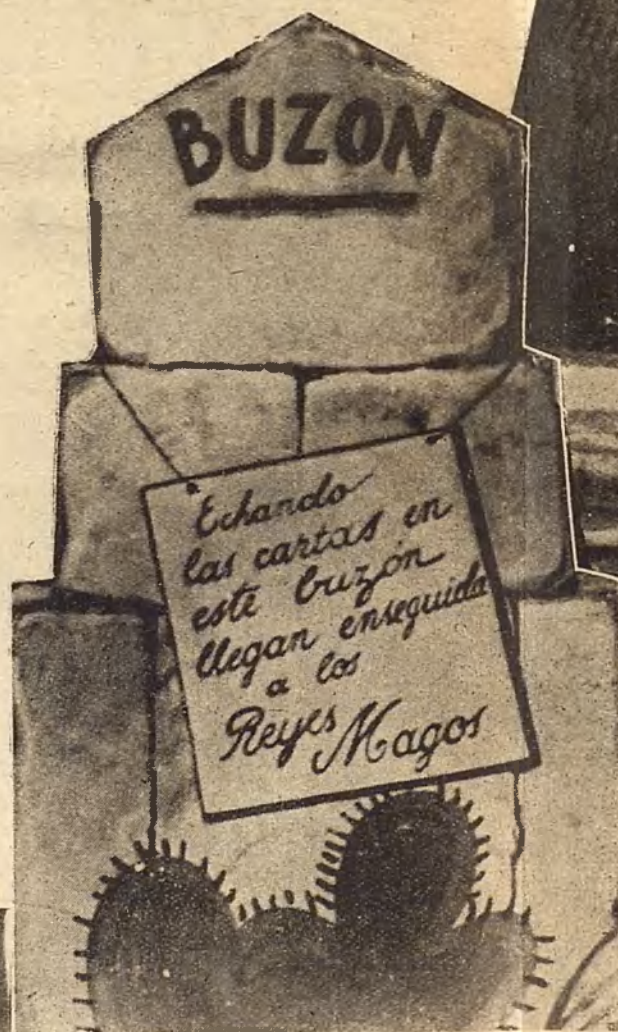 BUZON
Echando
las cartas en
este buzón
llegan enseguida
a los
Reyes Magos